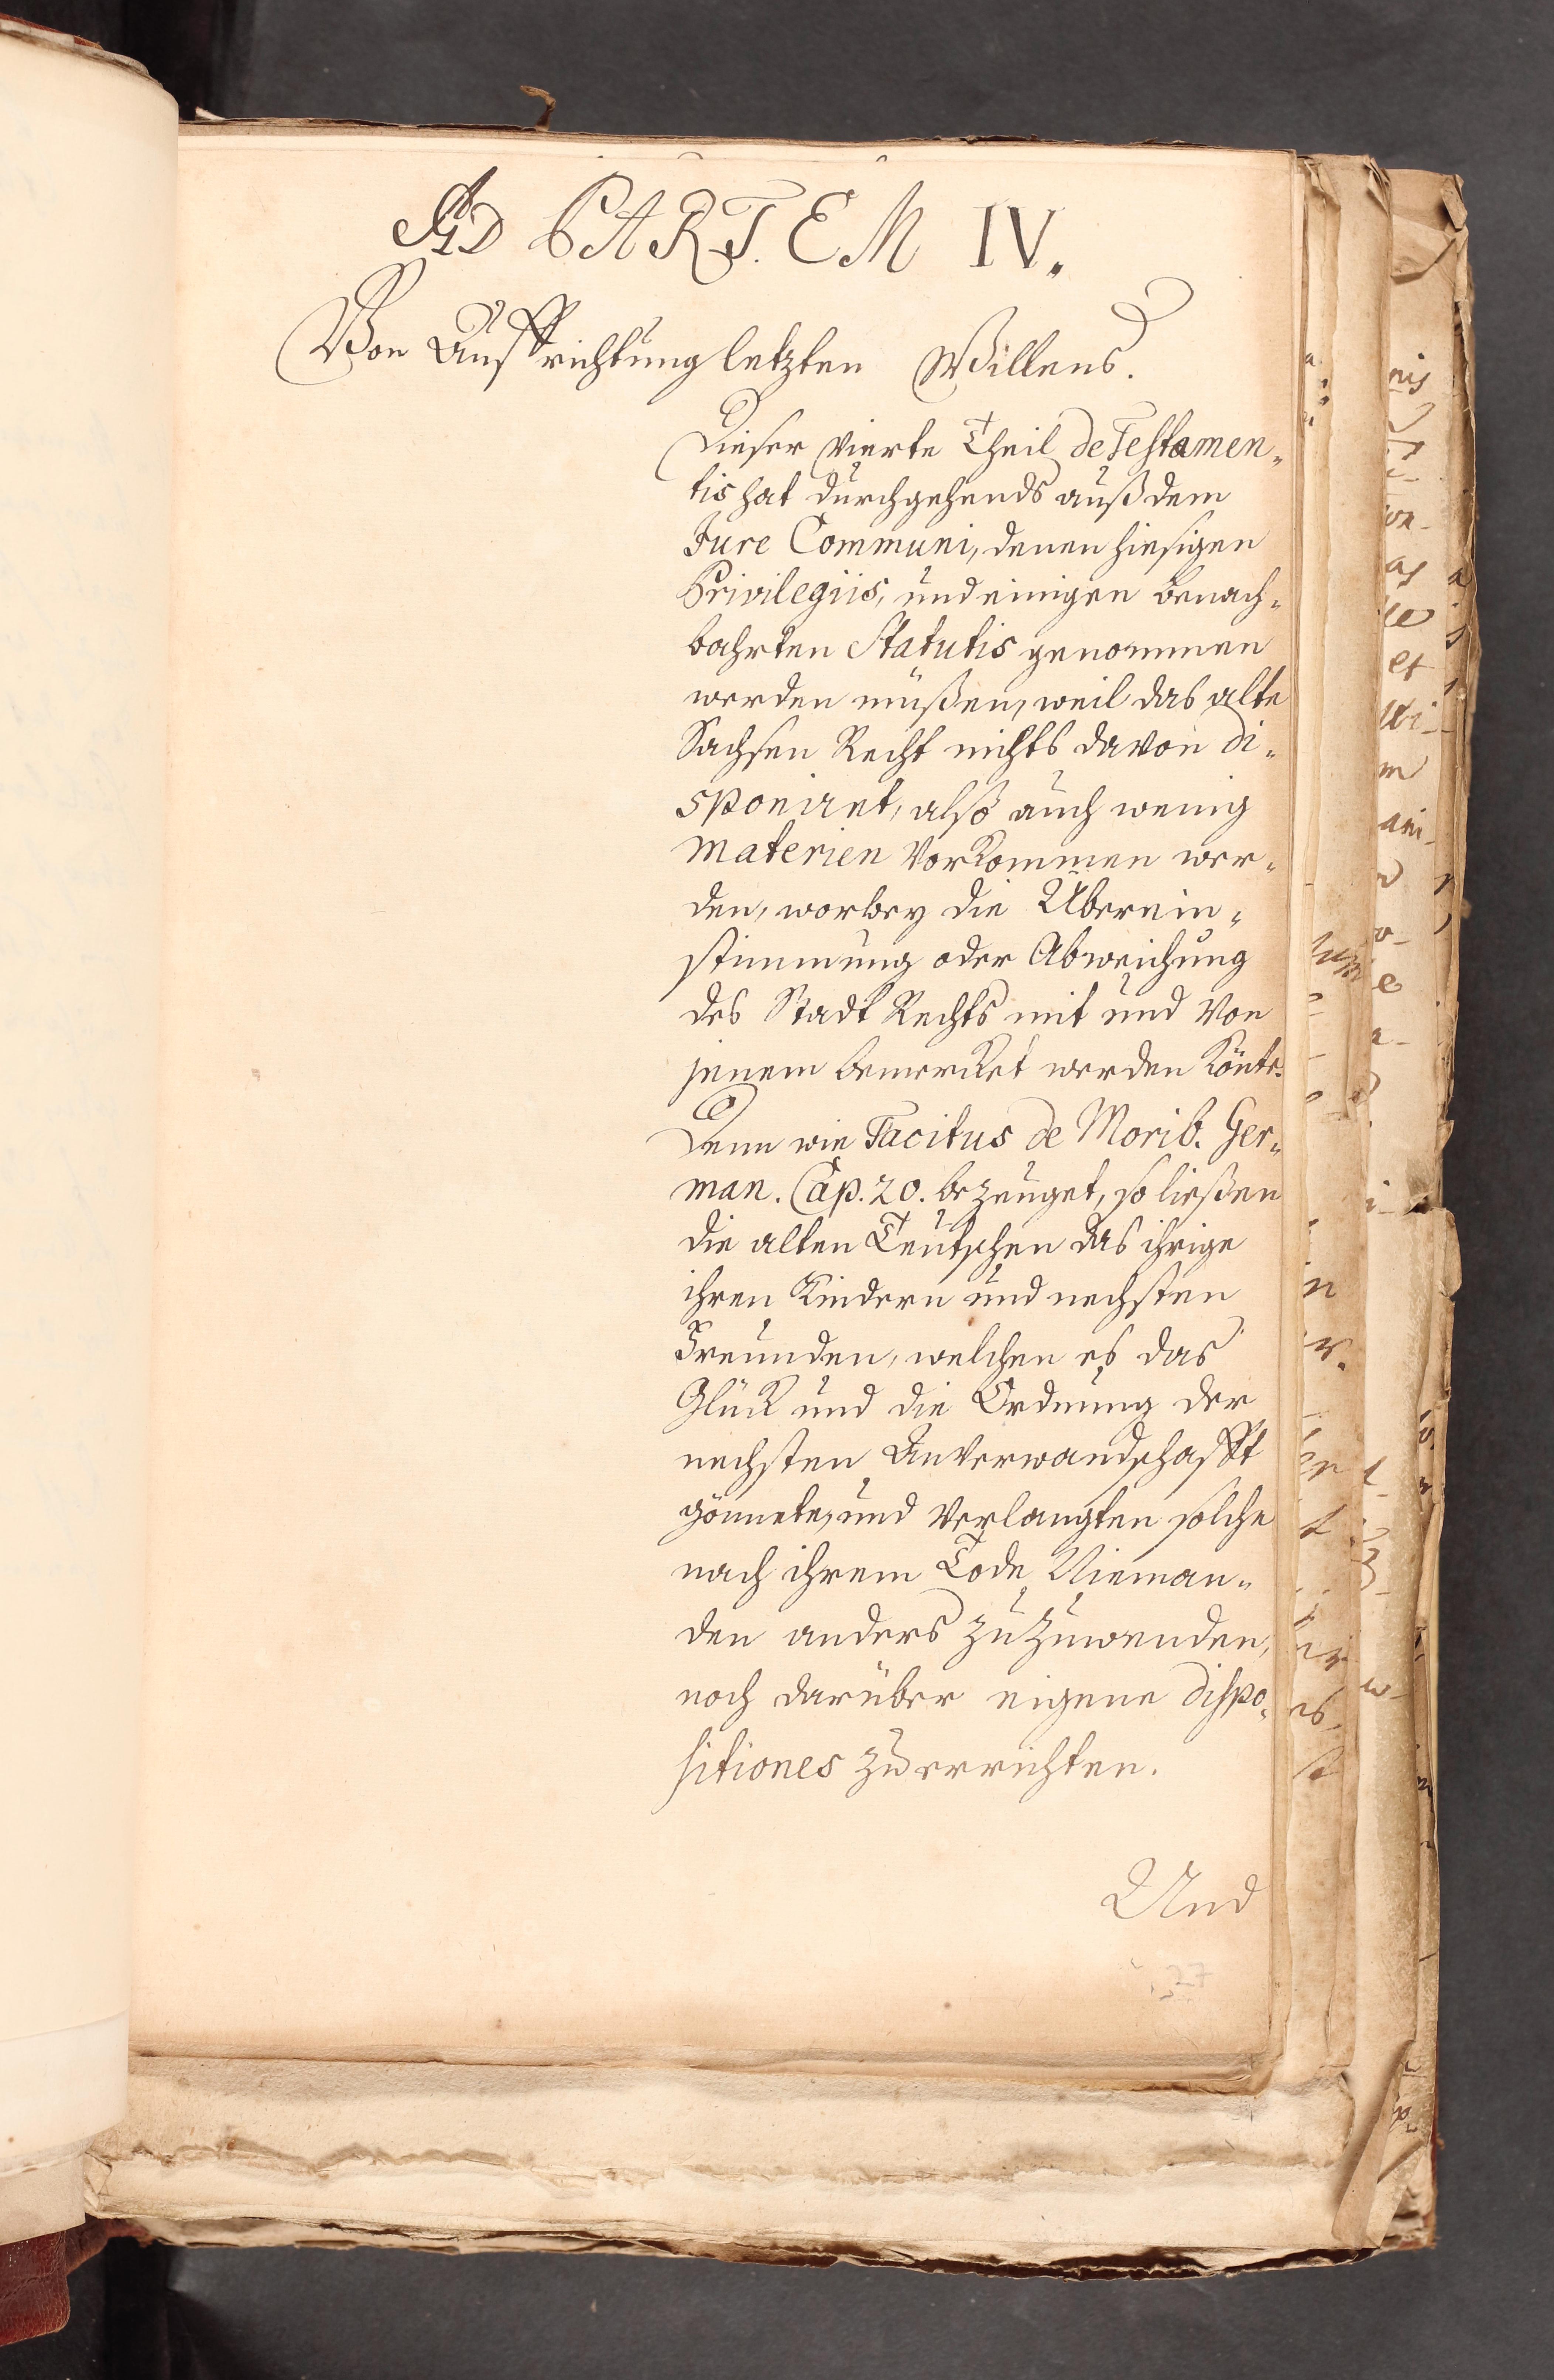 AD PARTEM IV.
Von Auffrichtung letzten Willens.
Dieser vierte Theil de Testamen-
tis hat durchgehends auß dem
Jure Communi, denen hiesigen
Privilegiis, und einigen benach-
bahrten Statutis genommen
werden müßen, weil das alte
Sachsen Recht nichts davon di-
sponiret, alß auch wenig
materien vorkommen wer-
den, worbey die Überein-
stimmung oder Abweichung
des Stadt Rechts mit und von
jenem bemercket werden könte.
Denn wie Tacitus de Morib. Ger-
man. Cap. 20. bezeuget, so ließen
die alten Teutschen das ihrige
ihren Kindern und nechsten
Freunden, welchen es das
Glück und die Ordnung der
nechsten Anverwandschafft
gönnete, und verlangten solche
nach ihrem Tode Nieman-
den anders zuzuwenden,
noch darüber eigene dispo-
sitiones zu errichten.
Und
27